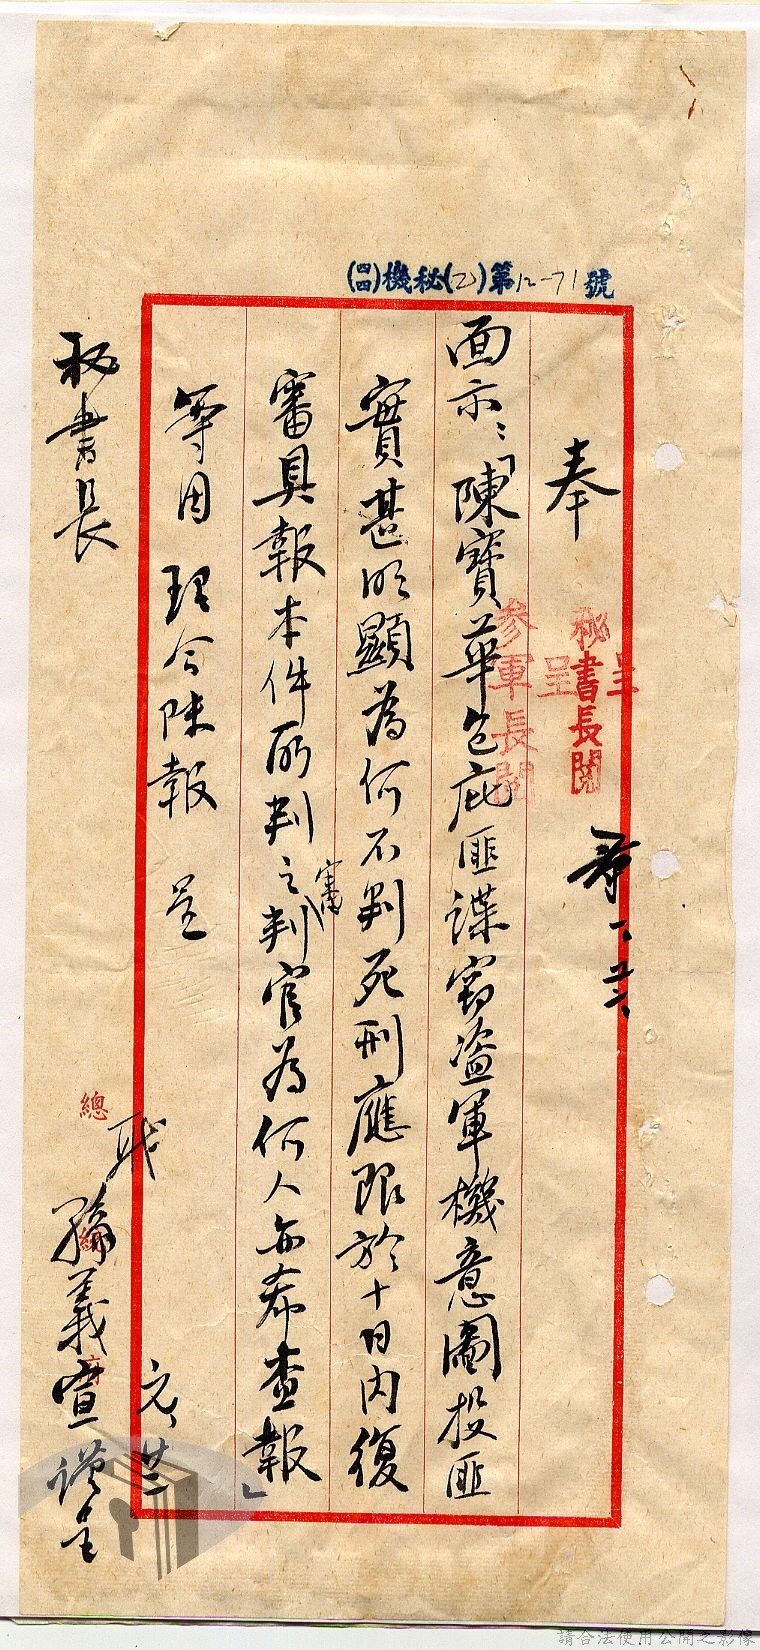 (四四)機秘(乙)第12-71號
奉
面示：「陳寶華包庇匪諜竊盜軍機意圖投匪
實甚明顯為何不判死刑應限於十日內復
審具報本件所判之審判官為何人亦希查報」
等因 理合陳報 呈
秘書長
職
義宣謹呈
元、廿三
呈
秘書長閱
呈
參軍長閱
一、廿六、
總
請合法使用公開之影像